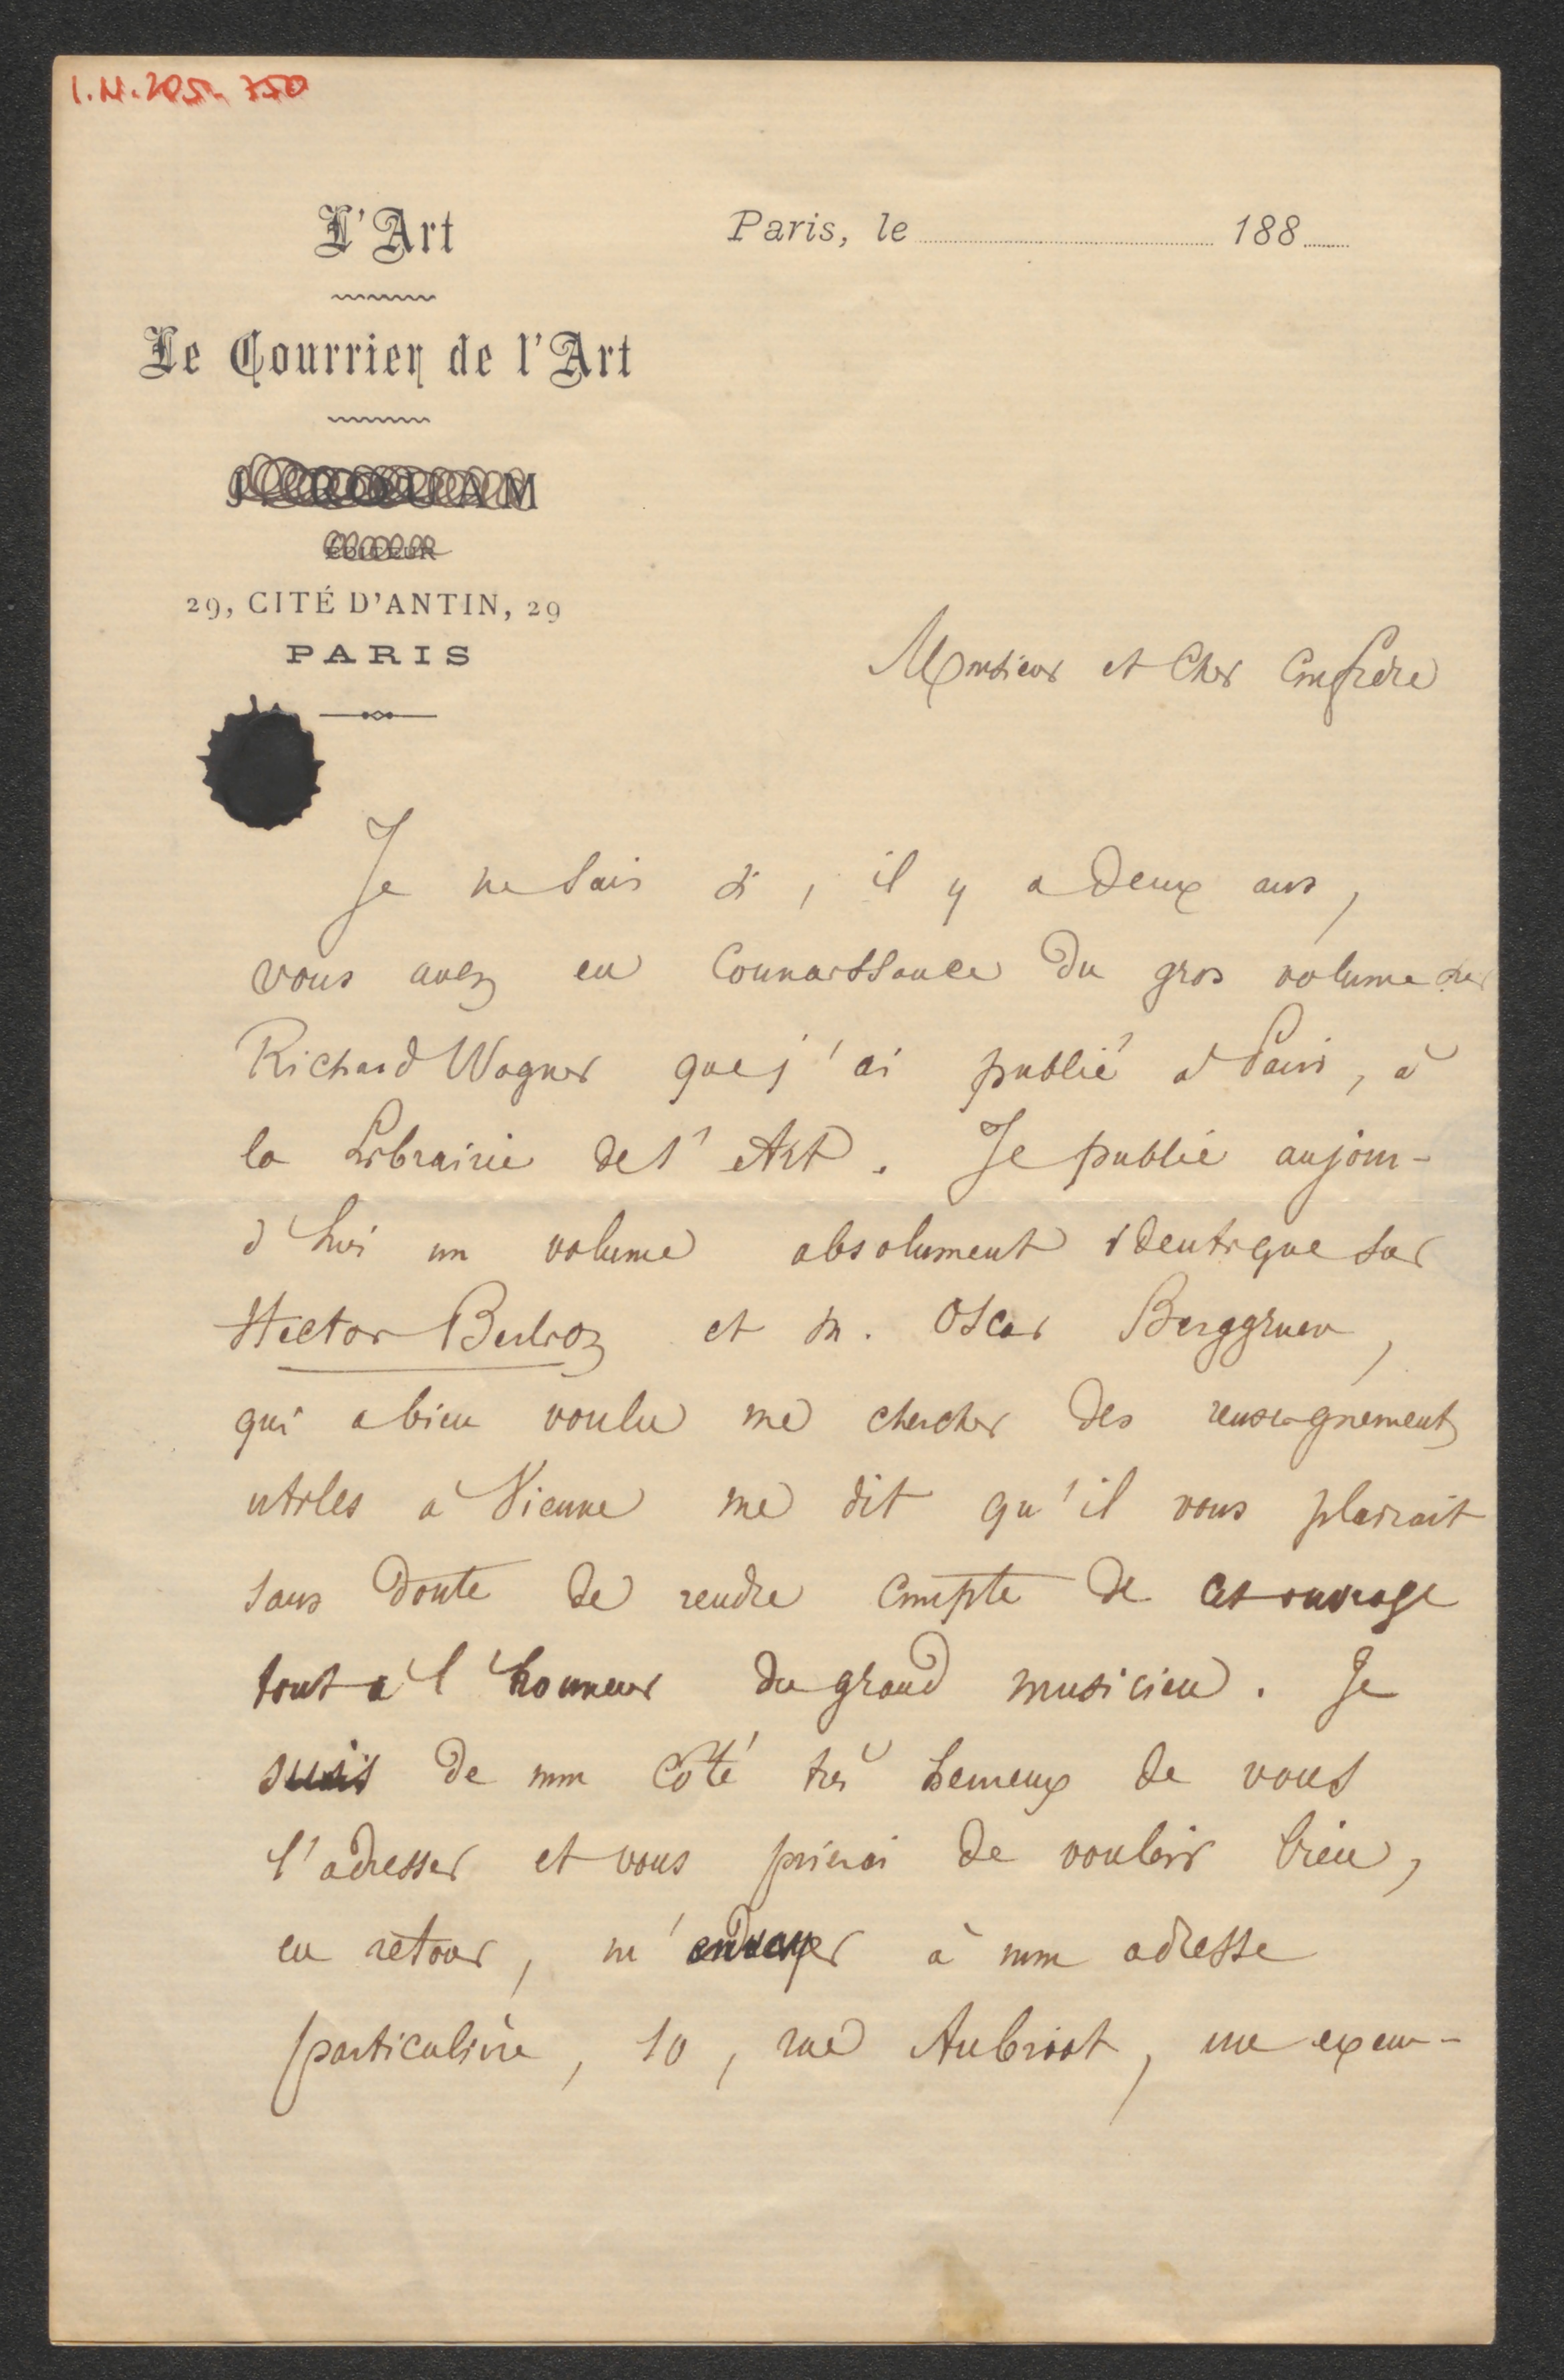 I.N. 205. 750
L'Art
Paris, le 188
Le Courrier de l'Art
J. ROUAM
ÉDITEUR
29, CITÉ D'ANTIN, 29
PARIS
Monsieur et Cher Confrère
Je ne sais si, il y a deux ans,
vous avez eu connaissance du gros volume sur
Richard Wagner que j'ai publié à Paris, à
la Librairie de l'Art. Je publie aujour-
d'hui un volume absolument identique sur
Hector Berlioz et M. Oscar Berggruen,
qui a bien voulu me chercher des renseignements
utiles à Vienne me dit qu'il vous plairait
sans doute de rendre compte de cet ouvrage
tout à l'honneur du grand musicien. Je
suis de mon côté très heureux de vous
l'adresser et vous prierai de vouloir bien,
en retour, m'envoyer à mon adresse
particulière, 10, rue Aubriot, un exem-